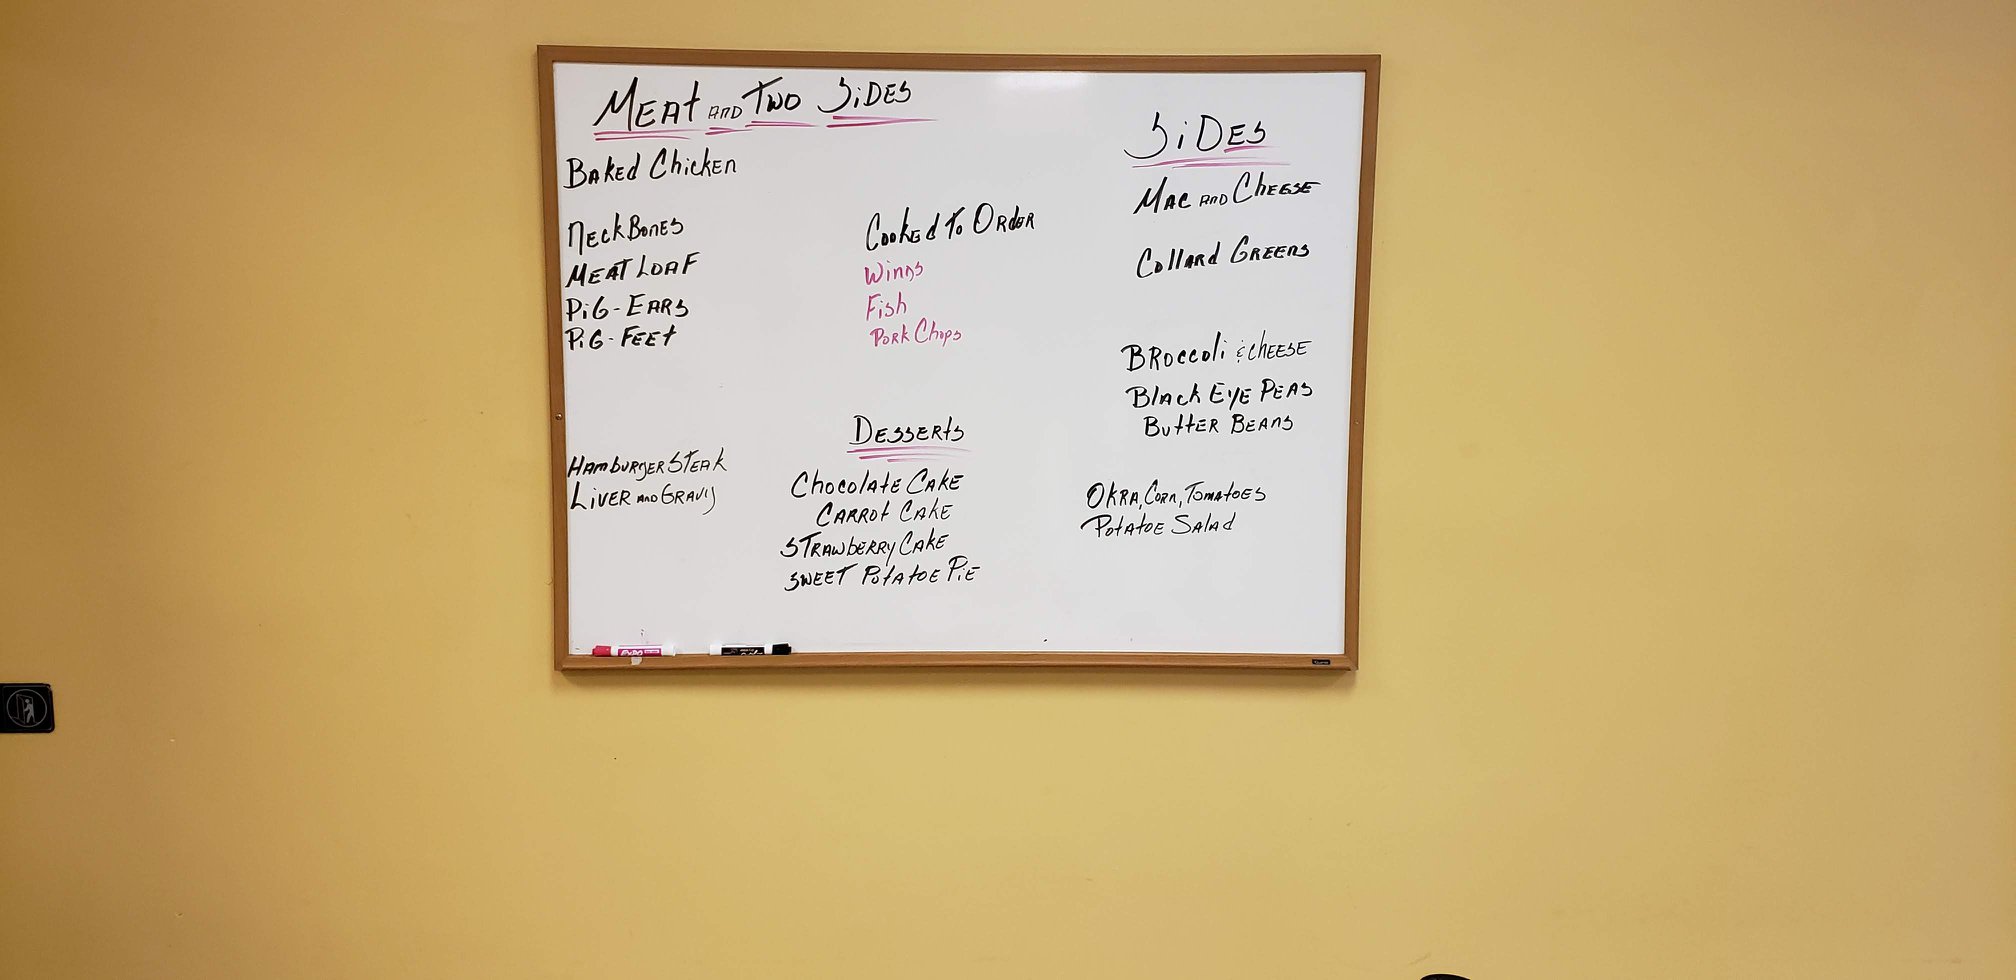 MEAt AND TWO SiDES
BAKEd ChickEn
NECKBONES
MEAT LOAF
PiG-EARS
PiG-FEEt
HAmburgER STEAK
LIVER AND GRAVY
CooKEd To OrdER
Wings
Fish
PORK Chops
DESSERtS
ChocolAtE CAKE
CARROt CAKE
STRAWbERRY CAKE
SWEET PotAtoE PiE
SiDES
MAC AND ChEESE
CollARd GREENS
BRoccoli & chEESE
BlAck EyE PEAS
ButtER BEANS
OKRA, CORN, TOMAtOES
PotAtoE SAlAd
EXPO